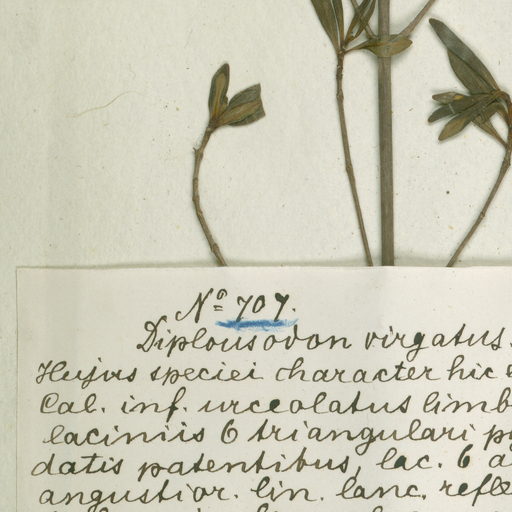 Nº 707.
Diplousodon virgatus.
Hujus speciei character hic
Cal. inf. urceolatus limb
laciniis 6 triangulari
datis patentibus, lac. 6
angustior. lin. lanc. refle